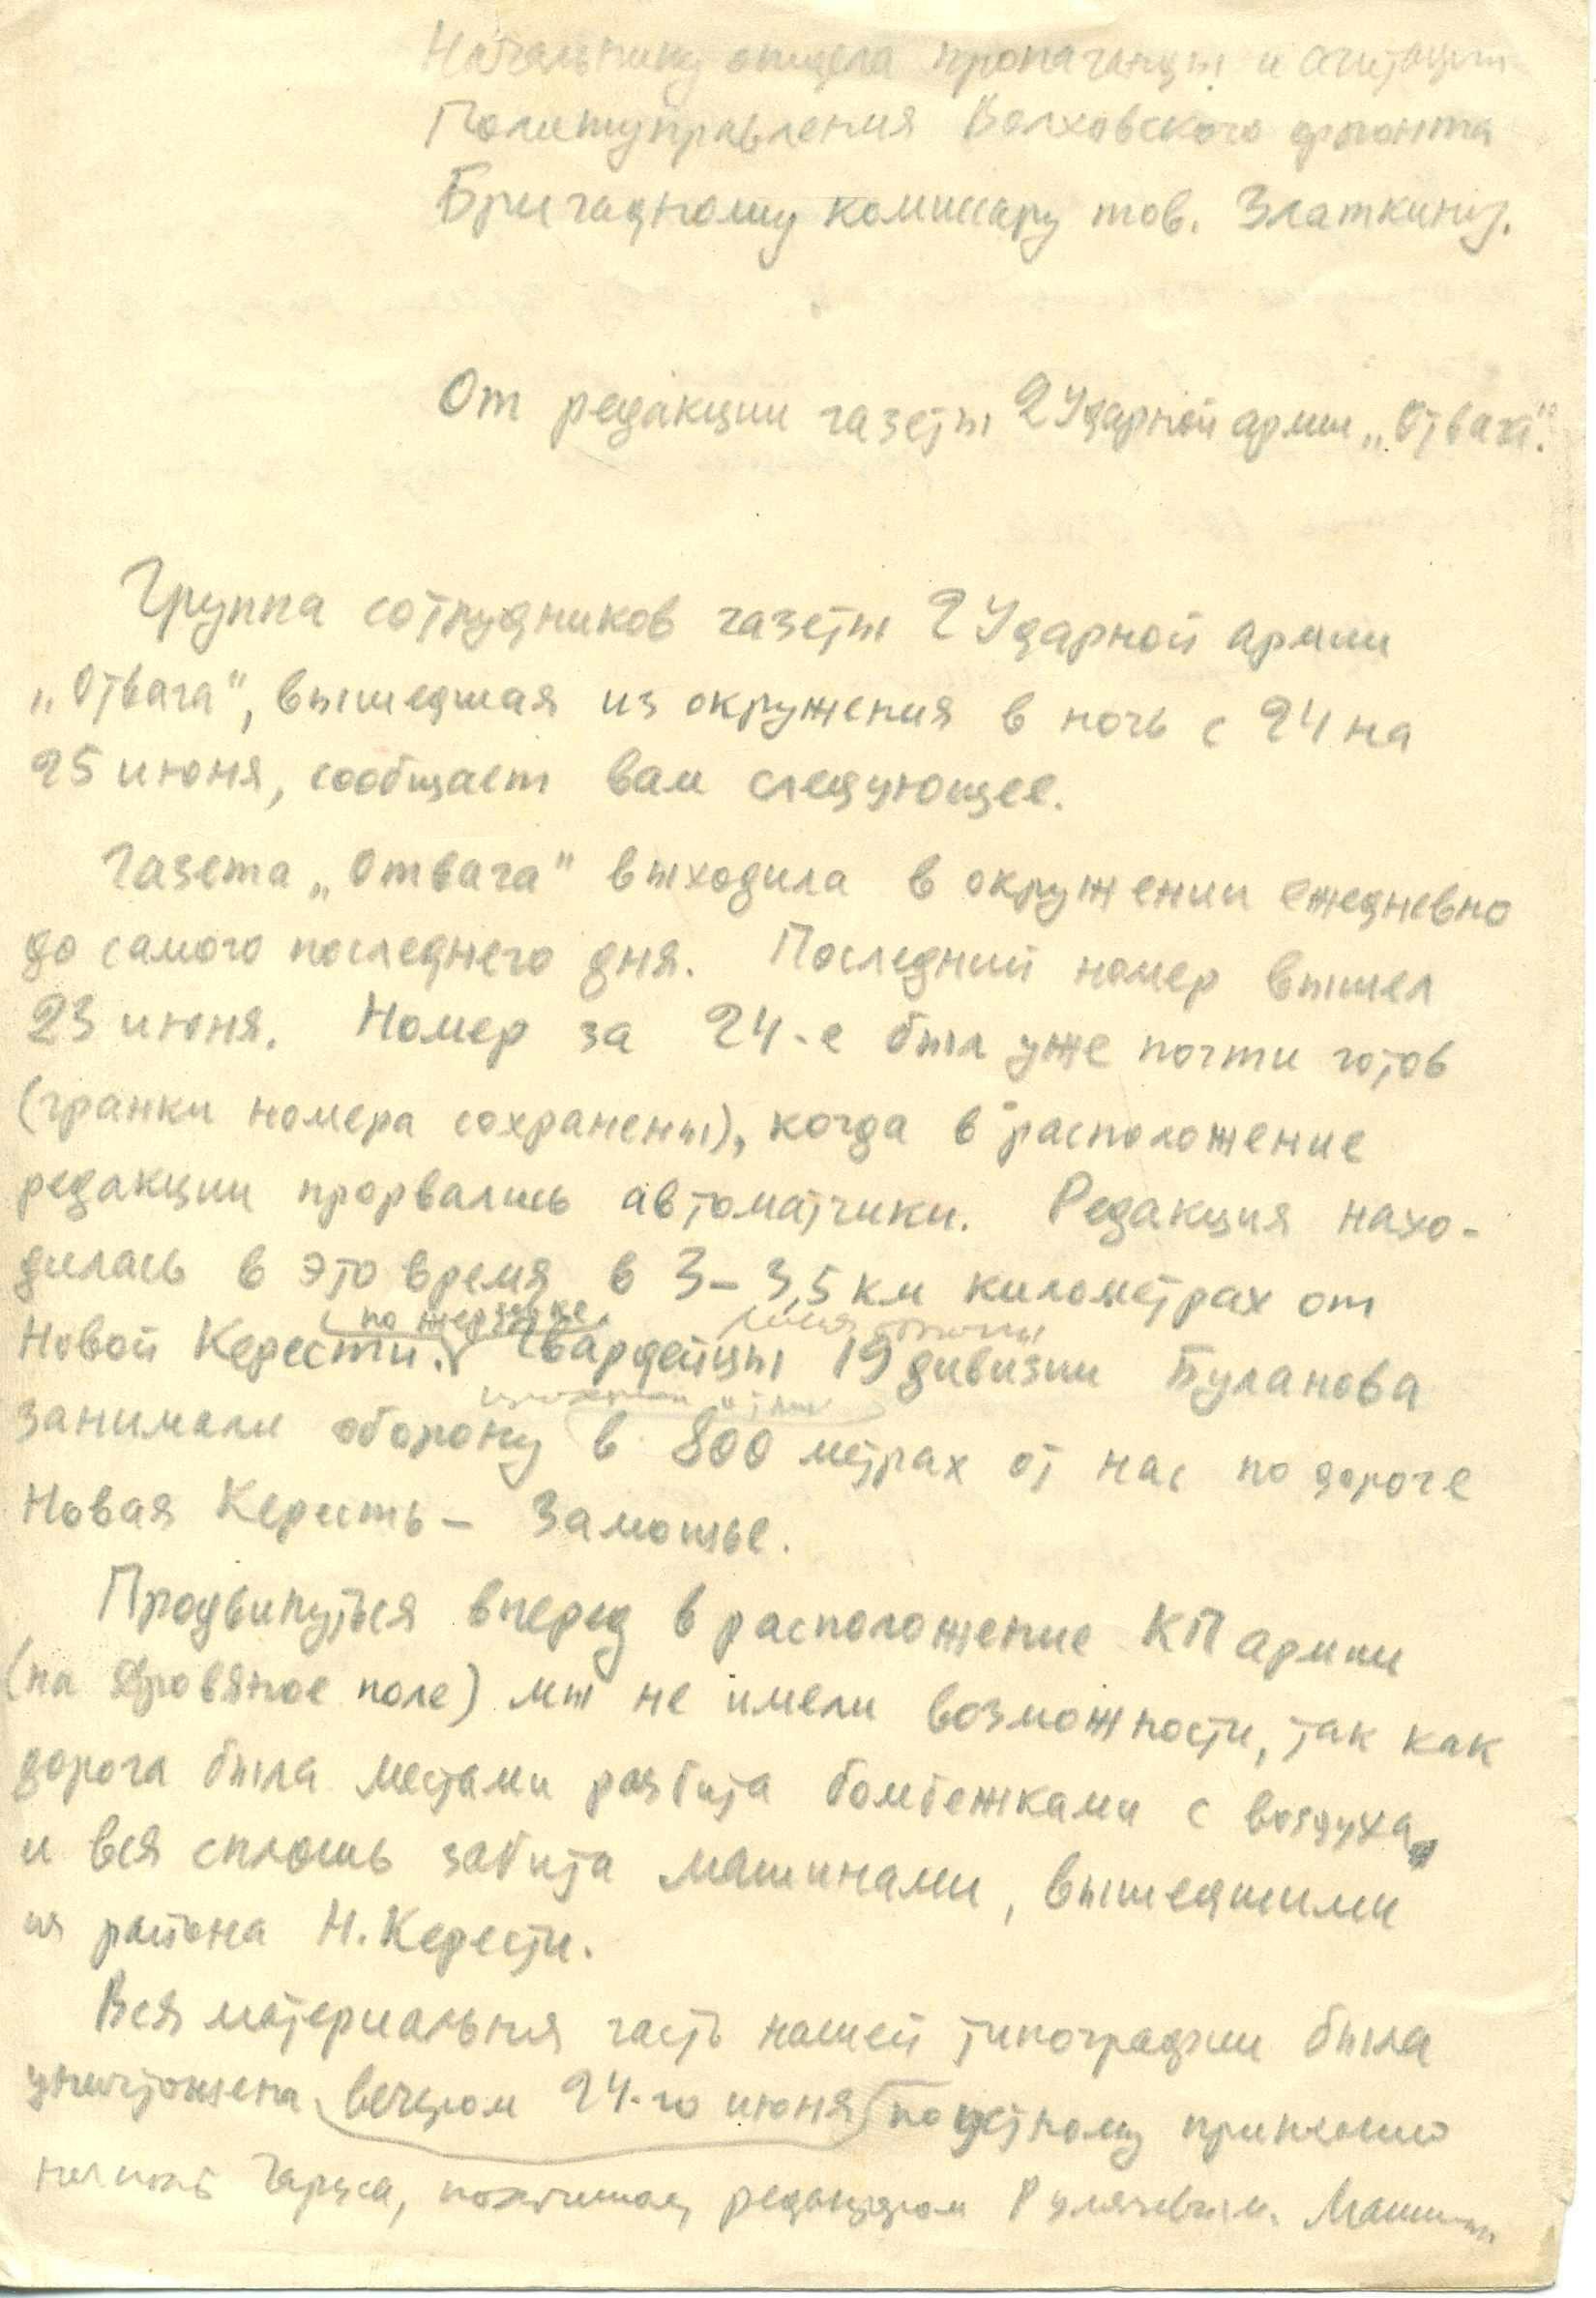 Начальнику отдела пропаганды и агитации
Политуправления Волховского фронта
Бригадному комиссару тов. Златкину.
От редакции газеты 2 Ударной армии „Отвага".
Группа сотрудников газеты 2 Ударной армии
„Отвага", вышедшая из окружения в ночь с 24 на
25 июня, сообщает вам следующее.
Газета „Отвага" выходила в окружении ежедневно
до самого последнего дня. Последний номер вышел
23 июня. Номер за 24-е был уже почти готов
(гранки номера сохранены), когда в расположение
редакции прорвались автоматчики. Редакция нахо-
дилась в это время в 3–3,5 км километрах от
по жердевке
Новой Керести. Гвардейцы 19 дивизии Буланова
занимали оборону в 800 метрах от нас по дороге
Новая Кересть – Замошье.
Продвинуться вперед в расположение КП армии
(на Дровяное поле) мы не имели возможности, так как
дорога была местами разбита бомбежками с воздуха,
и вся сплошь забита машинами, вышедшими
из района Н. Керести.
Вся материальная часть нашей типографии была
уничтожена вечером 24-го июня по устному приказанию
Гаруса, редактором Румянцевым. Машины